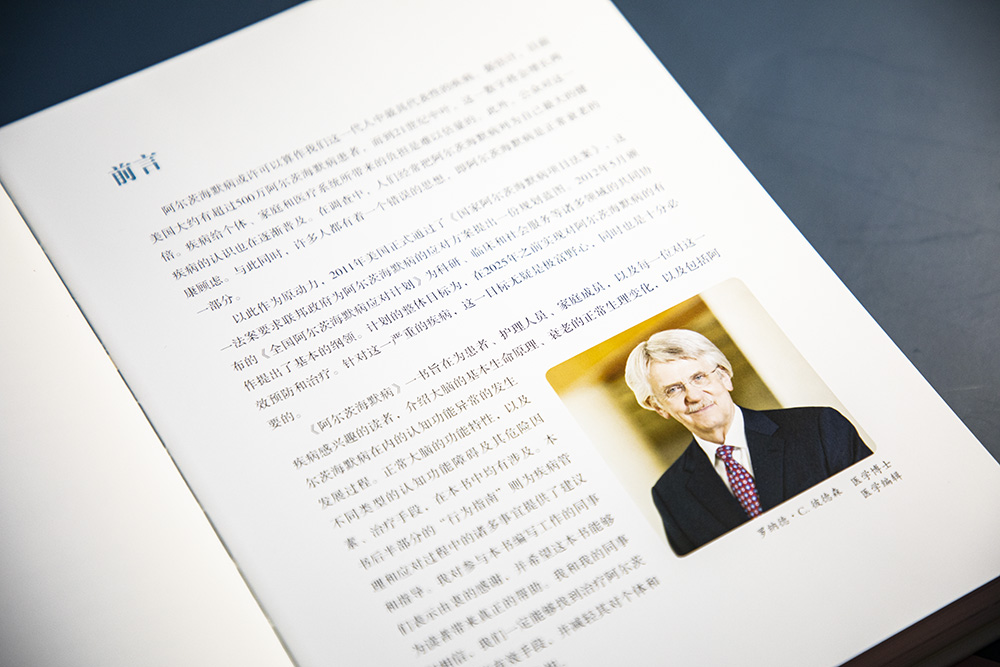 前言
阿尔茨海默病或许可以算作我们这一代人中最具代表性的疾病。据估计,目前
美国大约有超过500万阿尔茨海默病患者,而到21世纪中叶,这一数字将会增长两
倍。疾病给个体、家庭和医疗系统所带来的负担是难以估量的。此外,公众对这一
疾病的认识也在逐渐普及。在调查中,人们经常把阿尔茨海默病列为自己最大的健
康顾虑。与此同时,许多人都有着一个错误的思想,即阿尔茨海默病是正常衰老的
一部分。
以此作为原动力,2011年美国正式通过了《国家阿尔茨海默病项目法案》,这
一法案要求联邦政府为阿尔茨海默病的应对方案提出一份规划蓝图。2012年5月颁
布的《全国阿尔茨海默病应对计划》为科研、临床和社会服务等诸多领域的共同协
作提出了基本的纲领。计划的整体目标为,在2025年之前实现对阿尔茨海默病的有
效预防和治疗。针对这一严重的疾病,这一目标无疑是极富野心,同时也是十分必
要的。
《阿尔茨海默病》一书旨在为患者、护理人员、家庭成员,以及每一位对这一
疾病感兴趣的读者,介绍大脑的基本生命原理、衰老的正常生理变化,以及包括阿
尔茨海默病在内的认知功能异常的发生、
发展过程。正常大脑的功能特性,以及
不同类型的认知功能障碍及其危险因
素、治疗手段,在本书中均有涉及。本
书后半部分的“行为指南”则为疾病管
理和应对过程中的诸多事宜提供了建议
和指导。我对参与本书编写工作的同事
们表示由衷的感谢,并希望这本书能够
为读者带来真正的帮助。我和我的同事
们相信,我们一定能够找到治疗阿尔茨
有效手段,并减轻其对个体和
罗纳德·C.彼德森 医学博士
医学编辑